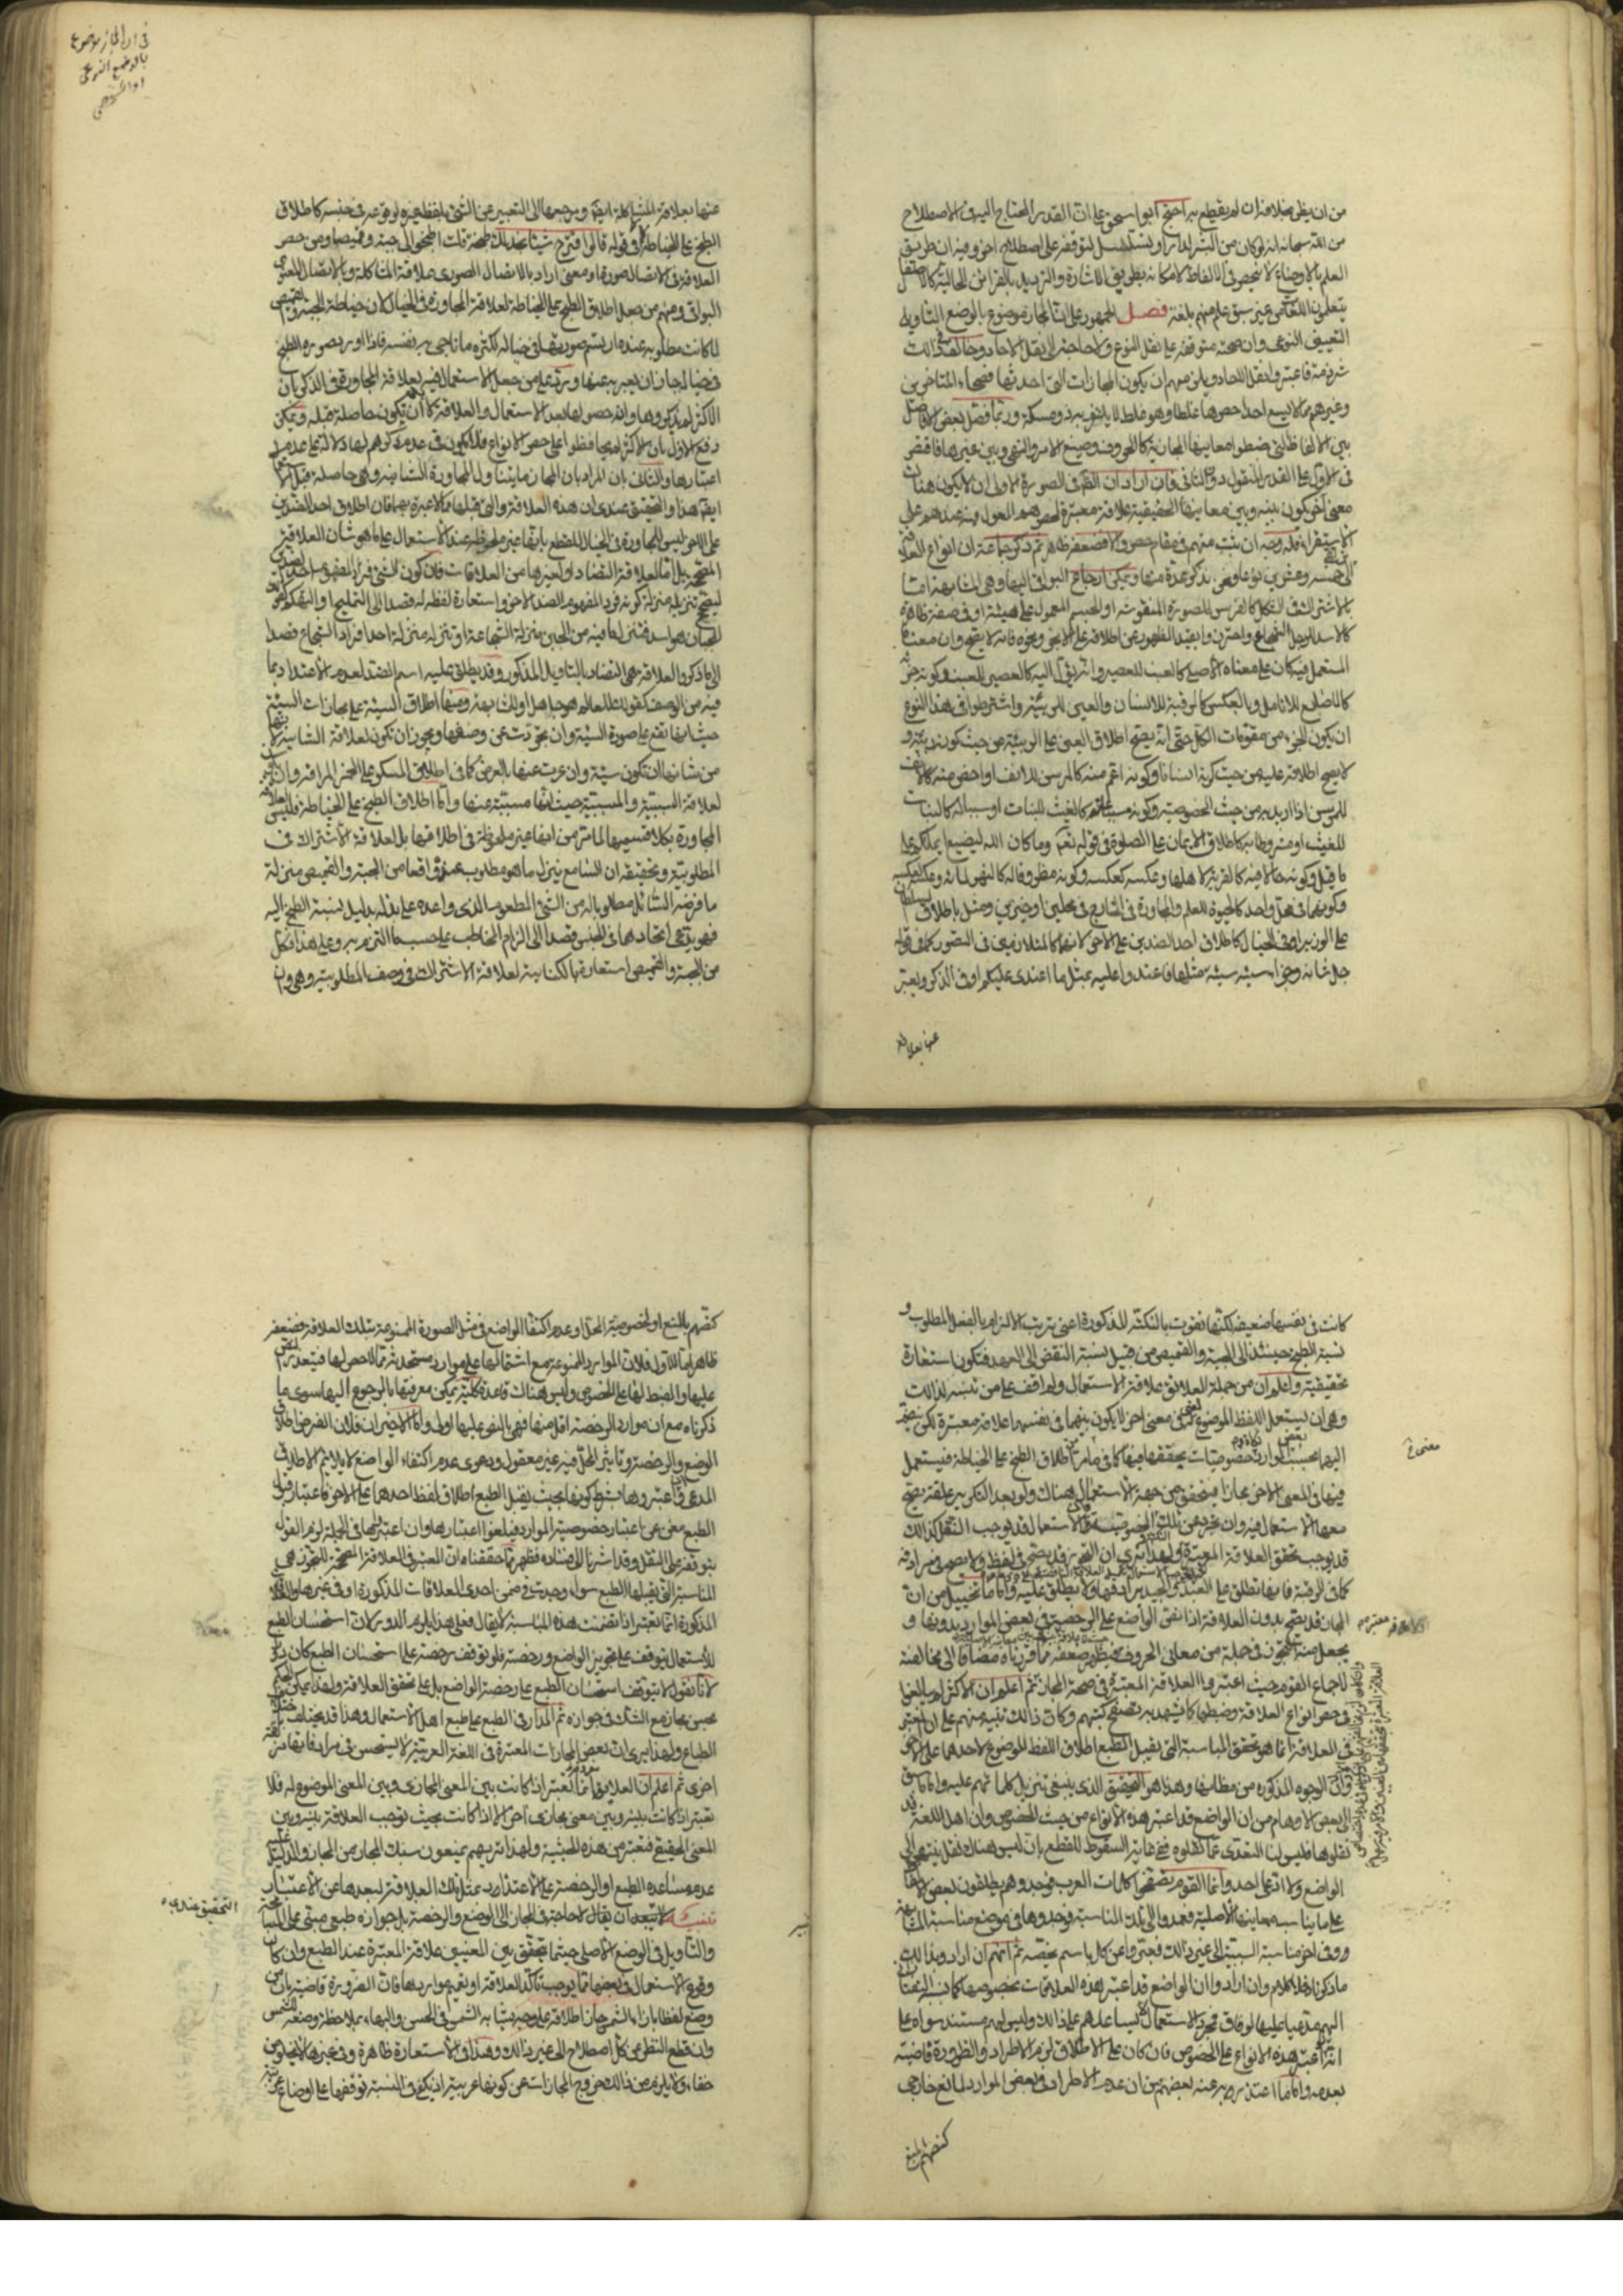 من ان يظن بخلافه ان لم يقطع به احتج ابو اسحق على ان القدر المحتاج اليه في الاصطلاح
من الله سبحانه انه لو كان من البشر لدار او تسلسل لتوقفه على اصطلاح اخر وفيه ان طريق
العلم بالاوضاع لا ينحصر في الالفاظ لامكانه بطريق الاشارة والترديد بالقرائن الحالية كالاطفال
يتعلمون اللغات من غير سبق علم منهم بلغة فصل الجمهور على ان المجاز موضوع بالوضع التاويلي
التعييني النوعي وان صحته متوقفة على نقل النوع ولا حاجة الى نقل الاحاد وخالف في ذلك
شرذمة فاعتبروا نقل الاحاد ويلزمهم ان يكون المجازات التي احدثها فصحاء المتاخرين
وغيرهم مما لا يسع احدا حصرها غلطا وهو غلط لا يلتزم به ذو مسكة وربما فصل بعض الافاضل
بين الالفاظ التي ضبطوا معانيها المجازية كالحروف وصيغ الامر والنهي وبين غيرها فاقتصر
في الاول على القدر المنقول دون الثاني فان اراد ان الظاهر في الصورة الاولى ان لا يكون هناك
معنى اخر يكون بينه وبين معانيها الحقيقية علاقة معتبرة لحصرهم المعول فيه عندهم على
الاستقراء فله وجه ان ثبت منهم في مقام حصر والا فضعفه ظاهر ثم ذكر جماعة ان انواع العلاقة
الى خمسة وعشرين نوعا ونحن نذكر عدة منها ويمكن ارجاع البواقي اليها وهي المشابهة اما
بالاشتراك في الشكل كالفرس للصورة المنقوشة او الجسم المعمول على هيئته او في صفة ظاهرة
كالاسد للرجل الشجاع واحترزوا بقيد الظهور عن اطلاقه على الابخر ونحوه فانه لا يصح وان معناه
المستعمل فيه كان على معناه الاصلي كالعنب للعصير وانه يؤل اليه كالعصير للعنب وكونه جزءه
كالاصابع للانامل وبالعكس كالرقبة للانسان والعين للربيئة واشترطوا في هذا النوع
ان يكون الجزء من مقومات الكل حتى انه يصح اطلاق العين على الربيئة من حيث كونه ربيئة و
لا يصح اطلاقه عليه من حيث كونه انسانا وكونه اعم منه كالمرسن للانف او اخص منه كالانف
للمرسن اذا اريد به من حيث الخصوصية وكونه مسببا عنه كالغيث للنبات او سببا له كالنبات
للغيث او مشروطا به كاطلاق الايمان على الصلوة في قوله تعم وما كان الله ليضيع ايمانكم على
ما قيل وكونه حالا فيه كالقرية لاهلها وعكسه كعكسه وكونه مظروفا له كالنهر لمائه وعكسه كعكسه
وكونهما في محل واحد كالحيوة للعلم والمجاورة في الخارج في محلين او حيزين ومثل باطلاق السلطان
على الوزير او في الخيال كاطلاق احد الضدين على الاخر لانهما كالمثلان في التصور كما في قوله
جل شانه وجزاء سيئة سيئة مثلها فاعتدوا عليه بمثل ما اعتدى عليكم او في الذكر ويعبر
عنها بعلاقة
في ان المجاز موضوع
بالوضع النوعي
او الشخصي
عنها بعلاقة المشاكلة ايضا ومرجعها الى التعبير عن الشئ بلفظ غيره لوقوعه في صحبته كاطلاق
الطبخ على الخياطة في قوله قالوا اقترح شيئا نجد لك طبخه قلت اطبخوا لي جبة وقميصا ومن حصر
العلاقة في الاتصال صورة او معنى اراد بالاتصال الصوري علاقة المشاكلة وبالاتصال المعنوي
البواقي ومنهم من جعل اطلاق الطبخ على الخياطة لعلاقة المجاورة في الخيال لان خياطة الجبة والقميص
لما كانت مطلوبه عنده ارتسم صورتها في خياله لكثرة ما ناجى به نفسه فاذا اورد صورة الطبخ
في خياله جاز ان يعبر به عنها ويرد على من جعل الاستعمال فيه بعلاقة المجاورة في الذكر بان
الاكثر لم يذكروها وانه حصولها بعد الاستعمال والعلاقة لا بد ان تكون حاصلة قبله ويمكن
دفع الاول بان الاكثر لم يحافظوا على حصر الانواع فلا يكون في عدم ذكرهم لها دلالة على عدم
اعتبارها والثاني بان المراد بان المجاز ما يتناول المجاورة الشانية وهي حاصلة قبل الاستعمال
ايضا هذا والتحقيق عندي ان هذه العلاقة والتي قبلها مما لا عبرة بهما فان اطلاق احد الضدين
على الاخر ليس للمجاورة في الخيال للقطع بانها غير ملحوظة عند الاستعمال على ما هو شان العلاقة
المصححة بل اما لعلاقة التضاد او لغيرها من العلاقات فان كون الشئ فردا لمفهوم احد الضدين
ليصح تنزيله منزلة كونه فردا لمفهوم الضد الاخر واستعارة لفظه له قصدا الى التمليح او التهكم كقولك
للجبان هو اسد فتنزل ما فيه من الجبن منزلة الشجاعة او تنزله منزلة احد افراد الشجاع قصدا
الى ما ذكر والعلاقة هي التضاد بالتاويل المذكور وقد يطلق عليه اسم الضد لعدم الاعتداد بما
فيه من الوصف كقولك للعالم هو جاهل اولئك بهذه ومنها اطلاق السيئة على مجازات السيئة
حيث انها تقع على صورة السيئة وان تجردت عن وصفها ويجوز ان تكون لعلاقة الشانية
من شانها ان تكون سيئة وان عريت عنها بالعرض كما في اطلاق المسكر على الخمر المراقة وان
لعلاقة السببية والمسببية حيث انها مسببة عنها واما اطلاق الطبخ على الخياطة فليس لعلاقة
المجاورة بكلا قسميها لما مر من انها غير ملحوظة في اطلاقها بل لعلاقة الاشتراك في
المطلوبية وتحقيقه ان السامع ينزل ما هو مطلوب عنده واقعا من الجبة والقميص منزلة
ما فرضه السائل مطلوبا له من الشئ المطعوم الذي واعده على بذله بدليل نسبة الطبخ اليه
فهو يدعى اتحادهما في الجنس قصدا الى الزام المخاطب على حسب ما التزم به وعلى هذا فكل
من الجبة والقميص استعارة بالكناية لعلاقة الاشتراك في وصف المطلوبية وهي وان
كانت في نفسها ضعيفة لكنها تقوت بالنكتة المذكورة اعني ترتب الالزام بالفعل المطلوب و
نسبة الطبخ حينئذ الى الجبة والقميص من قبيل نسبة النقض الى العهد فتكون استعارة
تحقيقية واعلم ان من جملة العلائق علاقة الاستعمال ولم اقف على من تنبه لذلك
وهي ان يستعمل اللفظ الموضوع لمعنى في معنى اخر لا يكون بينهما في نفسهما علاقة معتبرة لكن ينضم
اليها بحسب بعض الموارد خصوصيات يتحققها فيها كما في ما مر من اطلاق الطبخ على الخياطة فيستعمل
فيها في المعنى الاخر مجازا فيتحقق من جهة الاستعمال هناك ولو بعد التكرر علقة يصح
معها الاستعمال فيه وان تجرد عن تلك الخصوصية فالاستعمال قد يوجب النقل كذلك
قد يوجب تحقق العلاقة المعتبرة ولهذا ترى ان التجوز قد يصح في لفظ ولا يصح في مرادفه
كما في الرقبة فانها تطلق على العبد ولا يطلق عليه واما ما تخيل من ان
المجاز قد يصح بدون العلاقة اذا نص الواضع على الرخصة في بعض الموارد بدونها و
يجعل منه التجوز في جملة من معاني الحروف فيظهر ضعفه مما قررناه مضافا الى مخالفته
لاجماع القوم حيث اعتبروا العلاقة المعتبرة في صحة المجاز ثم اعلم ان الاكثر لم يبالغوا
في حصر انواع العلاقة وضبطها كما يشهد به تصفح كتبهم وكان ذلك تنبيه منهم على ان المعتبر
في العلاقة انما هو تحقق المناسبة التي يقبل الطبع اطلاق اللفظ الموضوع لاحدهما على الاخر
وان الوجوه المذكورة من مظانها وهذا هو التحقيق الذي ينبغي تنزيل كلماتهم عليه واما ما سبق
الى بعض الاوهام من ان الواضع قد اعتبر هذه الانواع من حيث الخصوص وان اهل اللغة قد
نقلوها فليس لنا التعدي عما نقلوه ففي غاية السقوط للقطع بان ليس هناك نقل ينتهي الى
الواضع ولا ادعى احد وانما القوم تصفحوا كلمات العرب فوجدوهم يطلقون بعض الالفاظ
على ما يناسب معانيها الاصلية فعمدوا الى تلك المناسبة فوجدوها في موضع مناسبة المشابهة
وفي اخر مناسبة السببية الى غير ذلك فعبروا عن كل باسم يخصه ثم انهم ان ارادوا بذلك
ما ذكرناه فلا كلام وان ارادوا ان الواضع قد اعتبر هذه العلاقات بخصوصها كما نسب التفتازاني
اليهم مدعيا عليها الوفاق فمجرد الاستعمال لا يساعدهم على ذلك وليس لهم مستند سواه على
انه لو اعتبر هذه الانواع على الخصوص فان كان على الاطلاق لزم الاطراد والضرورة قاضية
بعدمه واما ما اعتذر به عنه بعضهم من ان عدم الاطراد في بعض الموارد لمانع خارجي
كنصهم بالمنع
كنصهم بالمنع او لخصوصية المحل او عدم اكتفاء الواضع في مثل الصورة الممنوعة بتلك العلاقة فضعفه
ظاهر اما الاول فلان الموارد الممنوعة مع اشتمالها على موارد مستحدثة مما لا حصر لها فيتعذر النص
عليها والضبط لها على الخصوص وليس هناك قاعدة كلية يمكن معرفتها بالرجوع اليها سوى ما
ذكرناه مع ان موارد الرخصة اقل منها فهي بالنص عليها اولى واما الاخيران فلان الغرض اطلاق
الوضع والرخصة وتاثير المحل فيه غير معقول ودعوى عدم اكتفاء الواضع لا يلائم الاطلاق
المدعى فان اعتبروها بشرط كونها بحيث يقبل الطبع اطلاق لفظ احدهما على الاخر فاعتبار قبول
الطبع مغن عن اعتبار خصوصية الموارد فيلغوا اعتبارها وان اعتبروها في الجملة لزم القول
بتوقفه على النقل وقد اشرنا الى فساده فظهر مما حققناه ان المعتبر في العلاقة المصححة للتجوز هي
المناسبة التي يقبلها الطبع سواء وجدت في ضمن احدى العلاقات المذكورة او في غيرها والعلاقة
المذكورة انما تعتبر اذا تضمنت هذه المناسبة لا يقال فعلى هذا يلزم الدور لان استحسان الطبع
للاستعمال يتوقف على تجويز الواضع ورخصته فلو توقف رخصته على استحسان الطبع كان دورا
لانا نقول لا يتوقف استحسان الطبع على رخصة الواضع بل على تحقق العلاقة ولهذا يمكن الحكم
بحسن مجاز مع الشك في جوازه ثم المدار في الطبع على طبع اهل الاستعمال وهذا قد يختلف باختلاف
الطباع ولهذا نرى ان بعض المجازات المعتبرة في اللغة العربية لا يستحسن في مرادفاتها من لغة
اخرى ثم اعلم ان العلائق انما تعتبر اذا كانت بين المعنى المجازي وبين المعنى الموضوع له فلا
تعتبر اذا كانت بينه وبين معنى مجازي اخر الا اذا كانت بحيث توجب العلاقة بينه وبين
المعنى الحقيقي فتعتبر من هذه الحيثية ولهذا تريهم يمنعون سبك المجاز من المجاز والدليل على
عدم مساعدة الطبع او الرخصة على الاعتداد بمثل تلك العلاقة لبعدها عن الاعتبار
تنبيه لا يبعد ان يقال لا حاجة في المجاز الى الوضع والرخصة بل جوازه طبعي مبتنى على المسامحة
والتاويل في الوضع الاصلي حيثما يتحقق بين المعنيين علاقة المعتبرة عند الطبع وان كان
وقوع الاستعمال في بعضها مما يوجب تاكد العلاقة او تعميم مواردها فان الضرورة قاضية بان من
وضع لفظا بازاء الشمس جاز اطلاقه على وجه مشابه الشمس في الحسن والبهاء بملاحظة وضعه للشمس
وان قطع النظر عن كل اصطلاح الى غير ذلك وهذا في الاستعارة ظاهرة وفي غيرها لا يخلو من
خفاء ولا يلزم من ذلك خروج المجازات عن كونها عربية اذ يكفي في النسبة توقفها على اوضاع عربية
التحقيق عندي